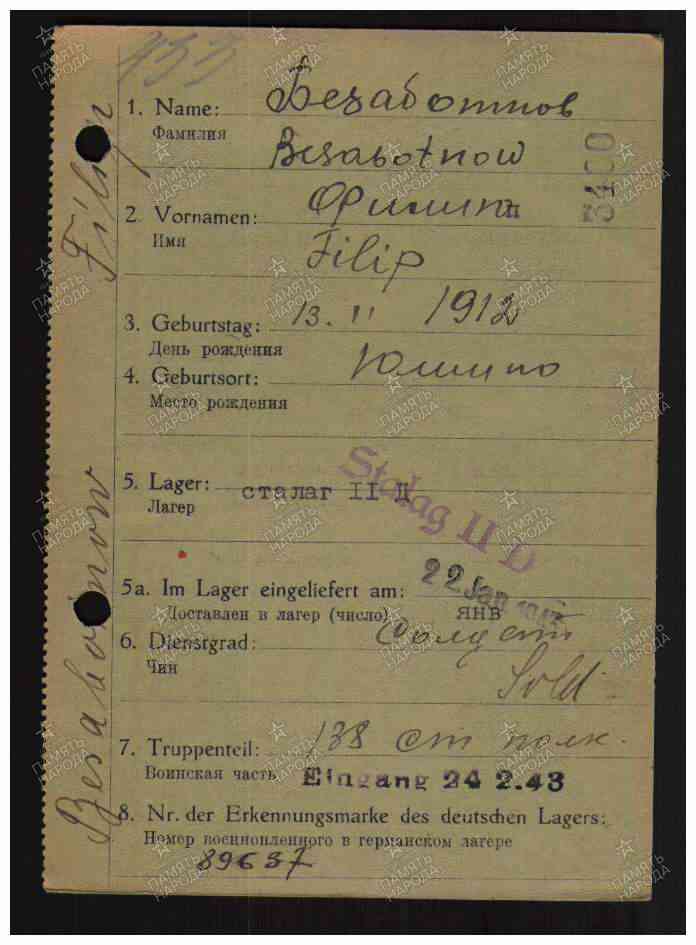 433
1. Name: Безаботнов
Фамилия
Besabotnow
3400
2. Vornamen: Филипп
Имя
Filip
3. Geburtstag: 13. 11 1912
День рождения
4. Geburtsort:
Место рождения
5. Lager: сталаг II Д
Лагер
Stalag II D
5a. Im Lager eingeliefert am: 22 Jan
Доставлен в лагер (число) янв
6. Dienstgrad: солдат
Чин
Sold.
7. Truppenteil: 138 ст полк.
Воинская часть Eingang 24 2.43
8. Nr. der Erkennungsmarke des deutschen Lagers:
Номер военнопленного в германском лагере
89637
Besabotnow Filip
ПАМЯТЬ
НАРОДА